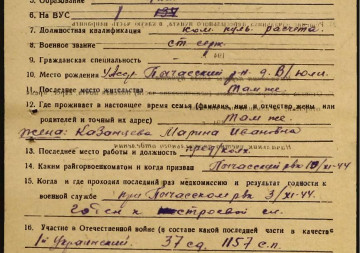 5. Образование
6. На ВУС
7. Должностная квалификация ком. пул. расчета.
8. Военное звание ст. серж.
9. Гражданская специальность
10. Место рождения р-н д.
11. Последнее место жительства там же.
12. Где проживает в настоящее время семья (фамилия, имя и отчество жены или
родителей и точный их адрес) там же.
жена: Казанцева Марина Ивановна
13. Последнее место работы и должность
14. Каким райгорвоенкоматом и когда призван рвк 10/XI-44
15. Когда и где проходил последний раз медкомиссию и результат годности к
военной службе при рвк 3/XI-44.
Годен к строевой сл.
16. Участие в Отечественной войне (в составе какой последней части и в качестве
1й Украинский. 37 сд. 1157 с.п.